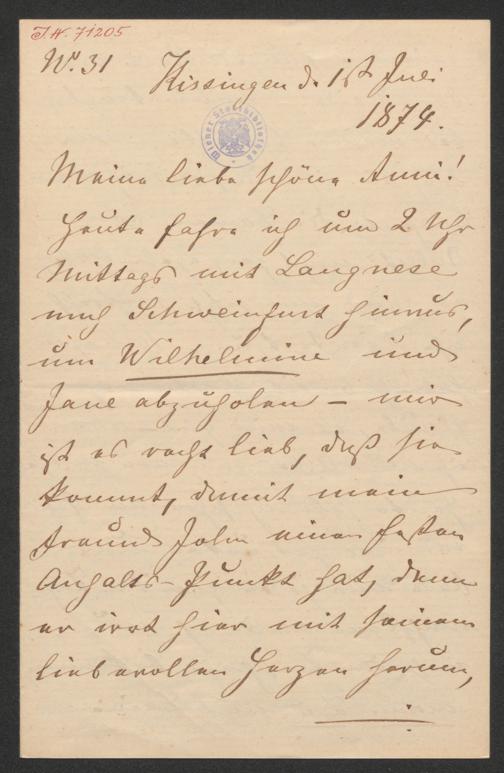 J.N. 71205
No. 31
Kissingen d. 1st Juli
1874.
Wiener Stadtbibliothek
Meine liebe schöne Anni!
Heute fahre ich um 2 Uhr
Mittags mit Langnese
nach Schweinfurt hinaus,
um Wilhelmine und
Jane abzuholen – mir
ist es recht lieb, daß sie
kommt, damit mein
Freund John einen festen
Anhalts-Punkt hat, denn
er irrt hier mit seinem
liebevollen Herzen herum,